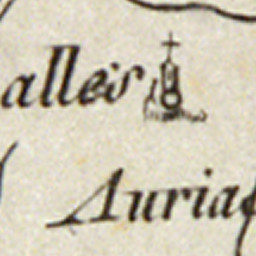 alles
Auria